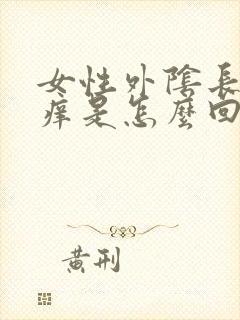 女性外陰長
痒是怎麼回
黃刑